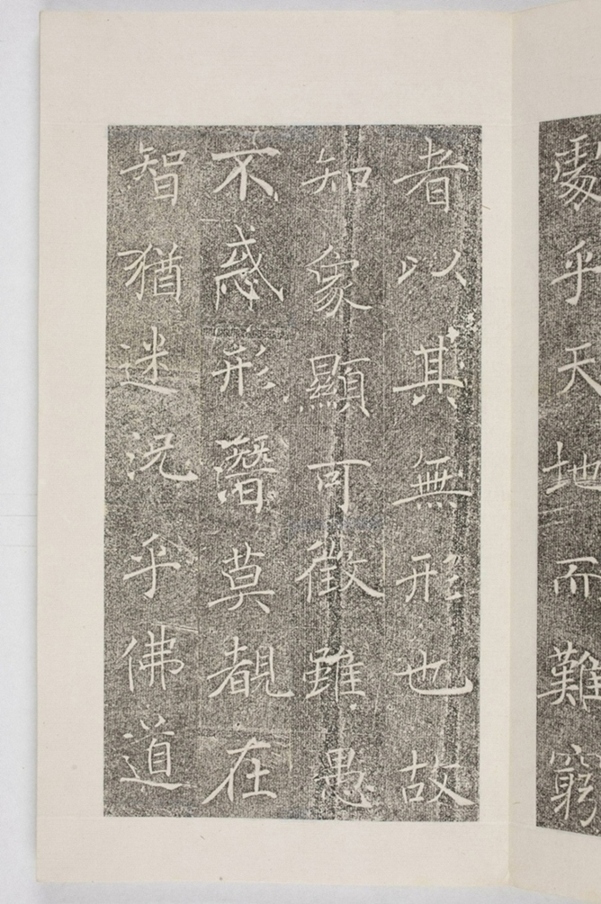 處乎天地而難窮
者以其無形也故
知象顯可徵雖愚
不惑形潛莫覩在
智猶迷況乎佛道